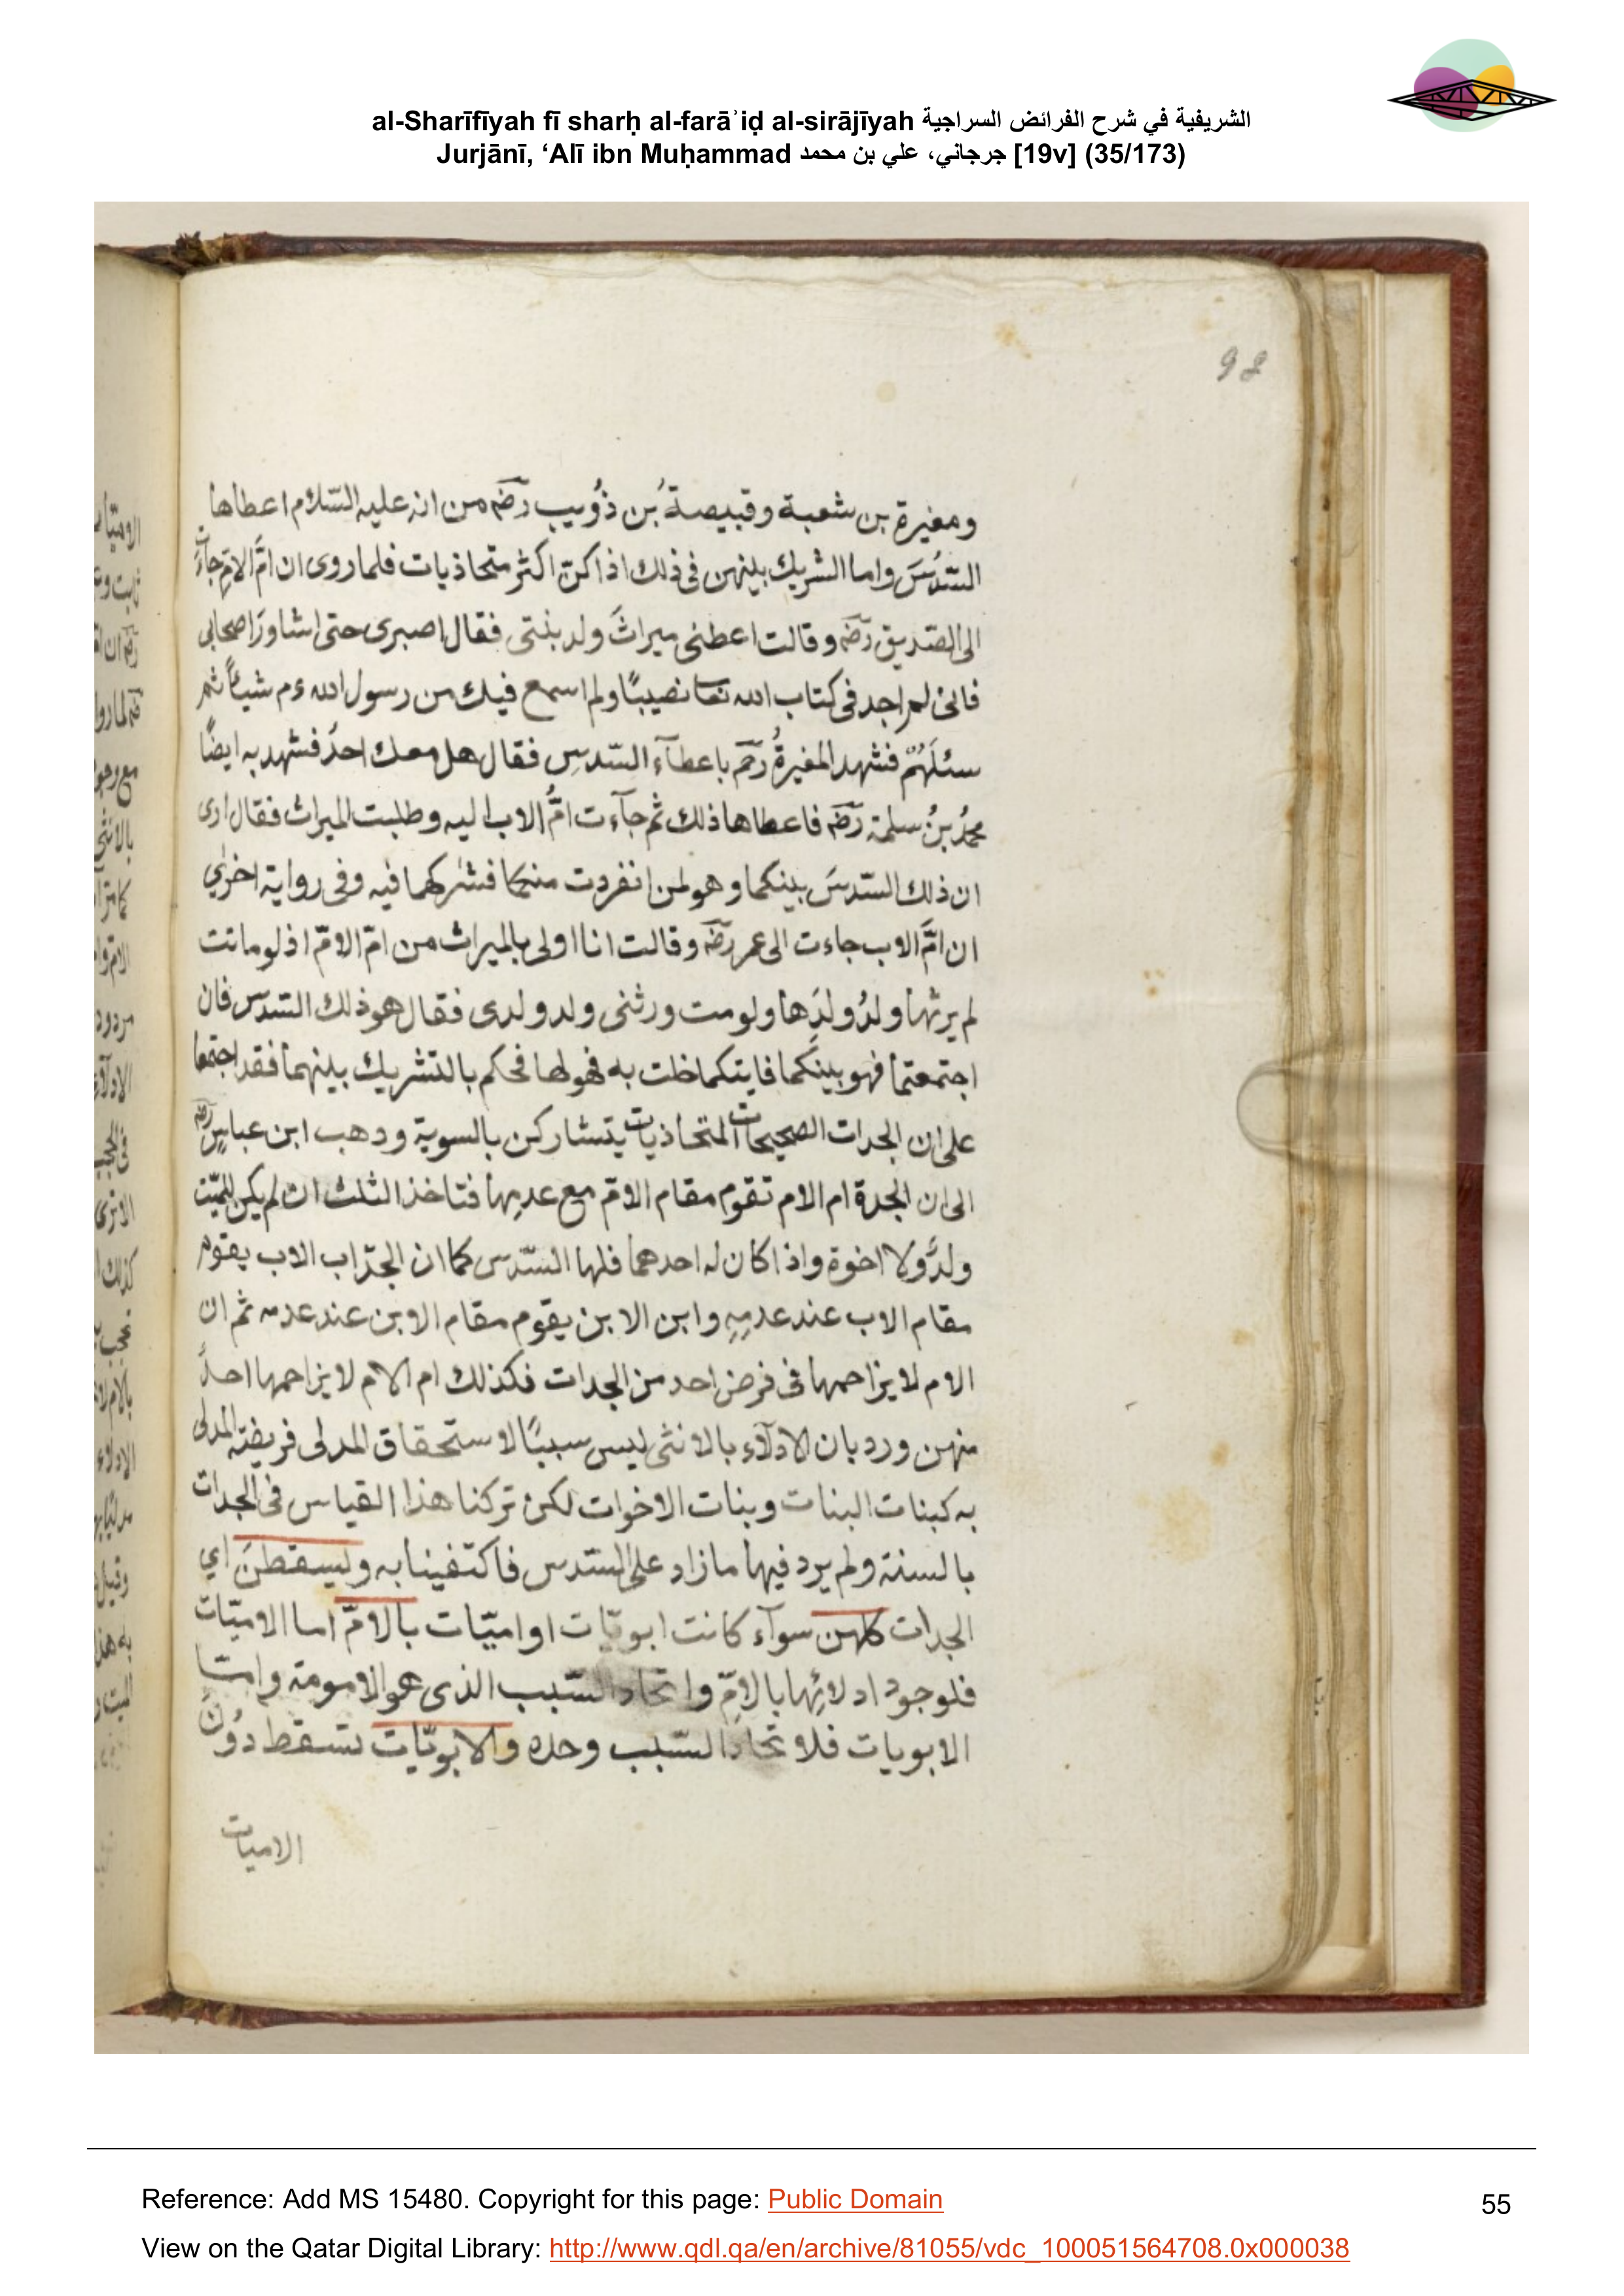 al-Sharīfīyah fī sharḥ al-farāʾiḍ al-sirājīyah الشريفية في شرح الفرائض السراجية
Jurjānī, ‘Alī ibn Muḥammad جرجاني، علي بن محمد [19v] (35/173)
98
ومغيرة بن شعبة وقبيصةُ بن ذُويب رضه من انه عليه السّلام اعطاها
السّدُسَ واما الشريك بينهن فى ذلك اذا كنّ اكثر متحاذيات فلما روى ان امَّ الامّ جاءت
الى الصّديق رضه وقالت اعطنى ميراثَ ولد بنتى فقال اصبرى حتى اشاورَ اصحابى
فانى لم اجد فى كتاب الله تعا نصيبًا ولم اسمع فيك من رسول الله ءم شيئًا ثم
سئلَهُمْ فشهد المغيرةُ رضه باعطآء السّدسِ فقال هل معك احدُ فشهد به ايضًا
محمدُ بنُ سلمة رضه فاعطاها ذلك ثم جآءت امُّ الاب اليه وطلبت الميراث فقال ارى
ان ذلك السّدسَ بينكما وهو لمن انفردت منكما فشركهما فيه وفى رواية اخرى
ان امَّ الاب جاءت الى عمر رضه وقالت انا اولى بالميراث من امّ الامّ اذ لو ماتت
لم يرثها ولدُ ولدِها ولو مت ورثنى ولد ولدى فقال هو ذلك السّدس فان
اجتمعتما فهو بينكما فايتكما خلت به فهو لها فحكم بالتشريك بينهما فقد اجتمعا
على ان الجدات الصحيحات المتحاذيات يتشاركن بالسوية ودهب ابن عباسٍ رضه
الى ان الجدة ام الام تقوم مقام الامّ مع عدمِها فتاخذ الثلث ان لم يكن للميّت
ولدٌ ولا اخوة واذا كان له احدهما فلها السّدس كما ان الجدّ اب الاب يقوم
مقام الاب عند عدمِهِ وابن الابن يقوم مقام الابن عند عدمه ثم ان
الام لا يزاحمها فى فرض احد من الجدات فكذلك ام الام لا يزاحمها احدٌ
منهن ورد بان الادلآء بالانثى ليس سببًا لاستحقاق المدلى فريضة المدلى
به كبنات البنات وبنات الاخوات لكن تركنا هذا القياس فى الجدات
بالسنة ولم يرد فيها ما زاد على السّدس فاكتفينا به ويسقطنَ اي
الجدات كلهن سوآء كانت ابويّات او اميّات بالامّ اما الاميّات
فلوجود ادلائها بالامِّ واتحاد السّبب الذى هو الامومة وامّا
الابويات فلاتحاد السّبب وحده والابويّات تسقط دُونَ
الاميات
Reference: Add MS 15480. Copyright for this page: Public Domain
55
View on the Qatar Digital Library: http://www.qdl.qa/en/archive/81055/vdc_100051564708.0x000038